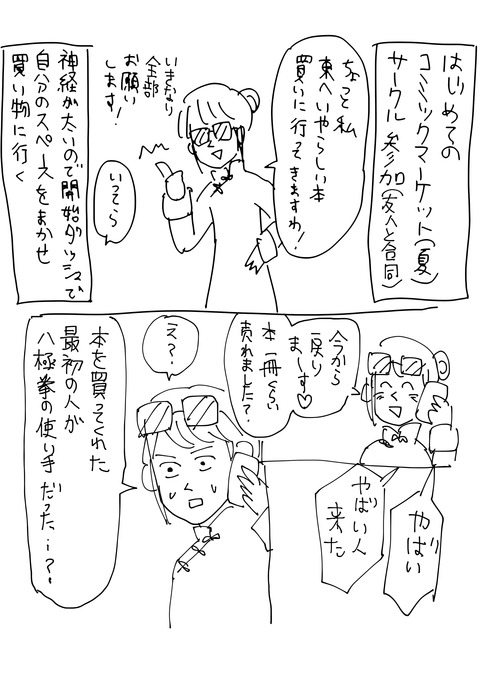 はじめての
コミックマーケット(夏)
サークル参加(友人と合同)
ちょっと私
東へいやらしい本
買いに行ってきますわ!
いきなり
全部
お願い
します!
いってら
神経が太いので開始ダッシュで
自分のスペースをまかせ
買い物に行く
今から
戻り
ま〜す♡
本一冊くらい
売れました?
やばい
やばい人
来た
え?
本を買ってくれた
最初の人が
八極拳の使い手だった…!?